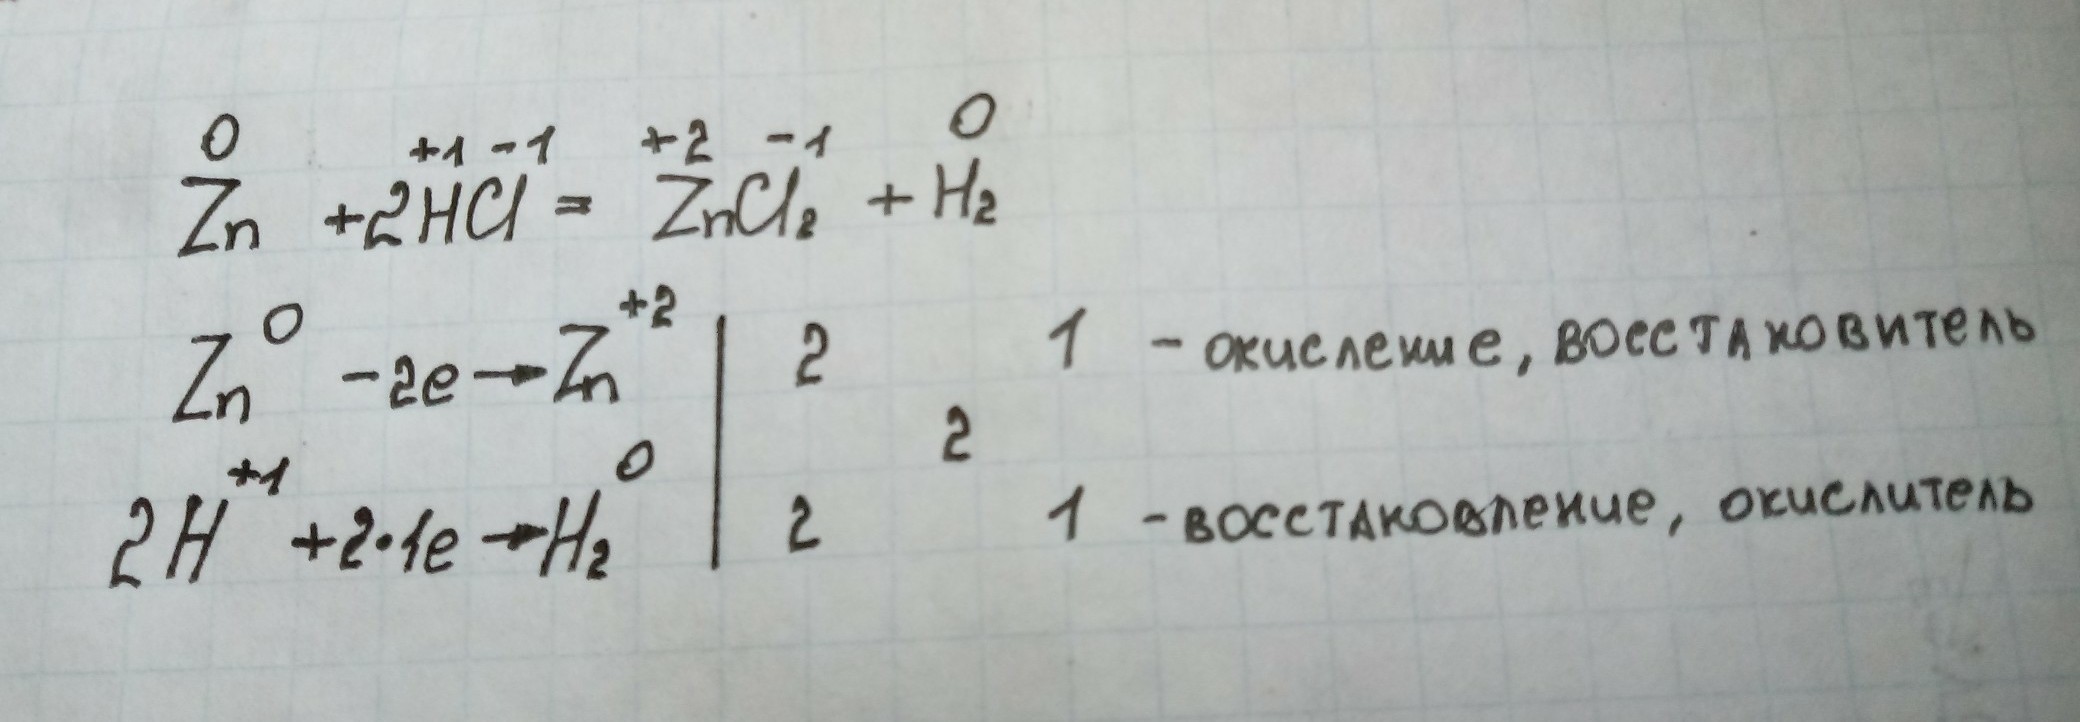 0 +1 -1 +2 -1 0
Zn +2HCl = ZnCl₂ + H₂
Zn⁰ -2e → Zn⁺² | 2 1 - окисление, восстановитель
2
2H⁺¹ +2·1e → H₂⁰ | 2 1 - восстановление, окислитель